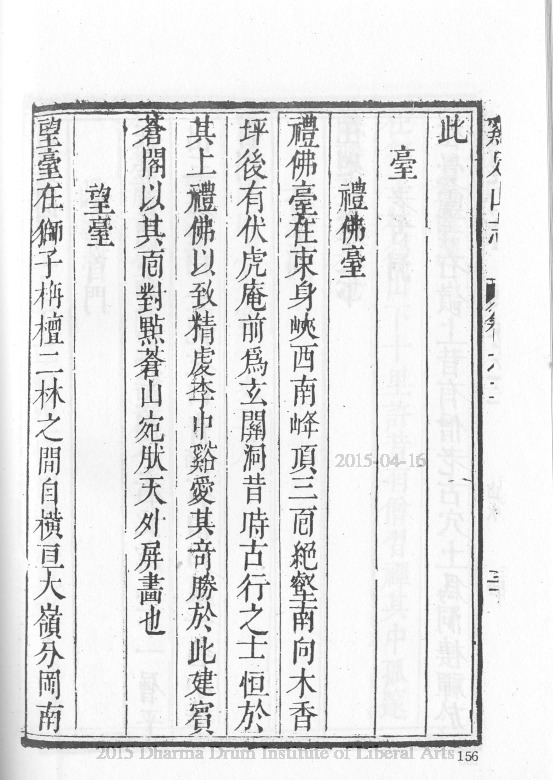 雞足山志
此
臺
禮佛臺
禮佛臺在束身峽西南峰頂三面絕壑南向木香
坪後有伏虎庵前爲玄關洞昔時古行之士恒於
其上禮佛以致精虔李中谿愛其奇勝於此建賓
蒼閣以其面對點蒼山宛肰天外屏畫也
望臺
望臺在獅子栴檀二林之間自橫亘大嶺分岡南
2015-04-16
2015 Dharma Drum Institute of Liberal Arts
156